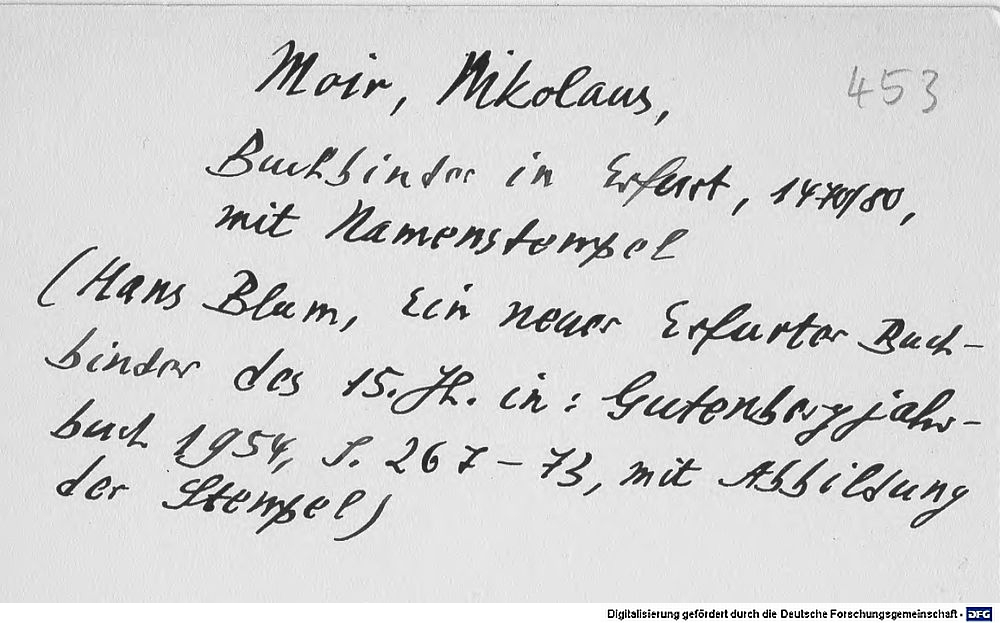 453
Moir, Nikolaus,
Buchbinder in Erfurt, 1470/80,
mit Namenstempel
(Hans Blum, Ein neuer Erfurter Buch-
binder des 15. Jh. in: Gutenbergjahr-
buch 1954, S. 267-73, mit Abbildung
der Stempel)
Digitalisierung gefördert durch die Deutsche Forschungsgemeinschaft - DFG